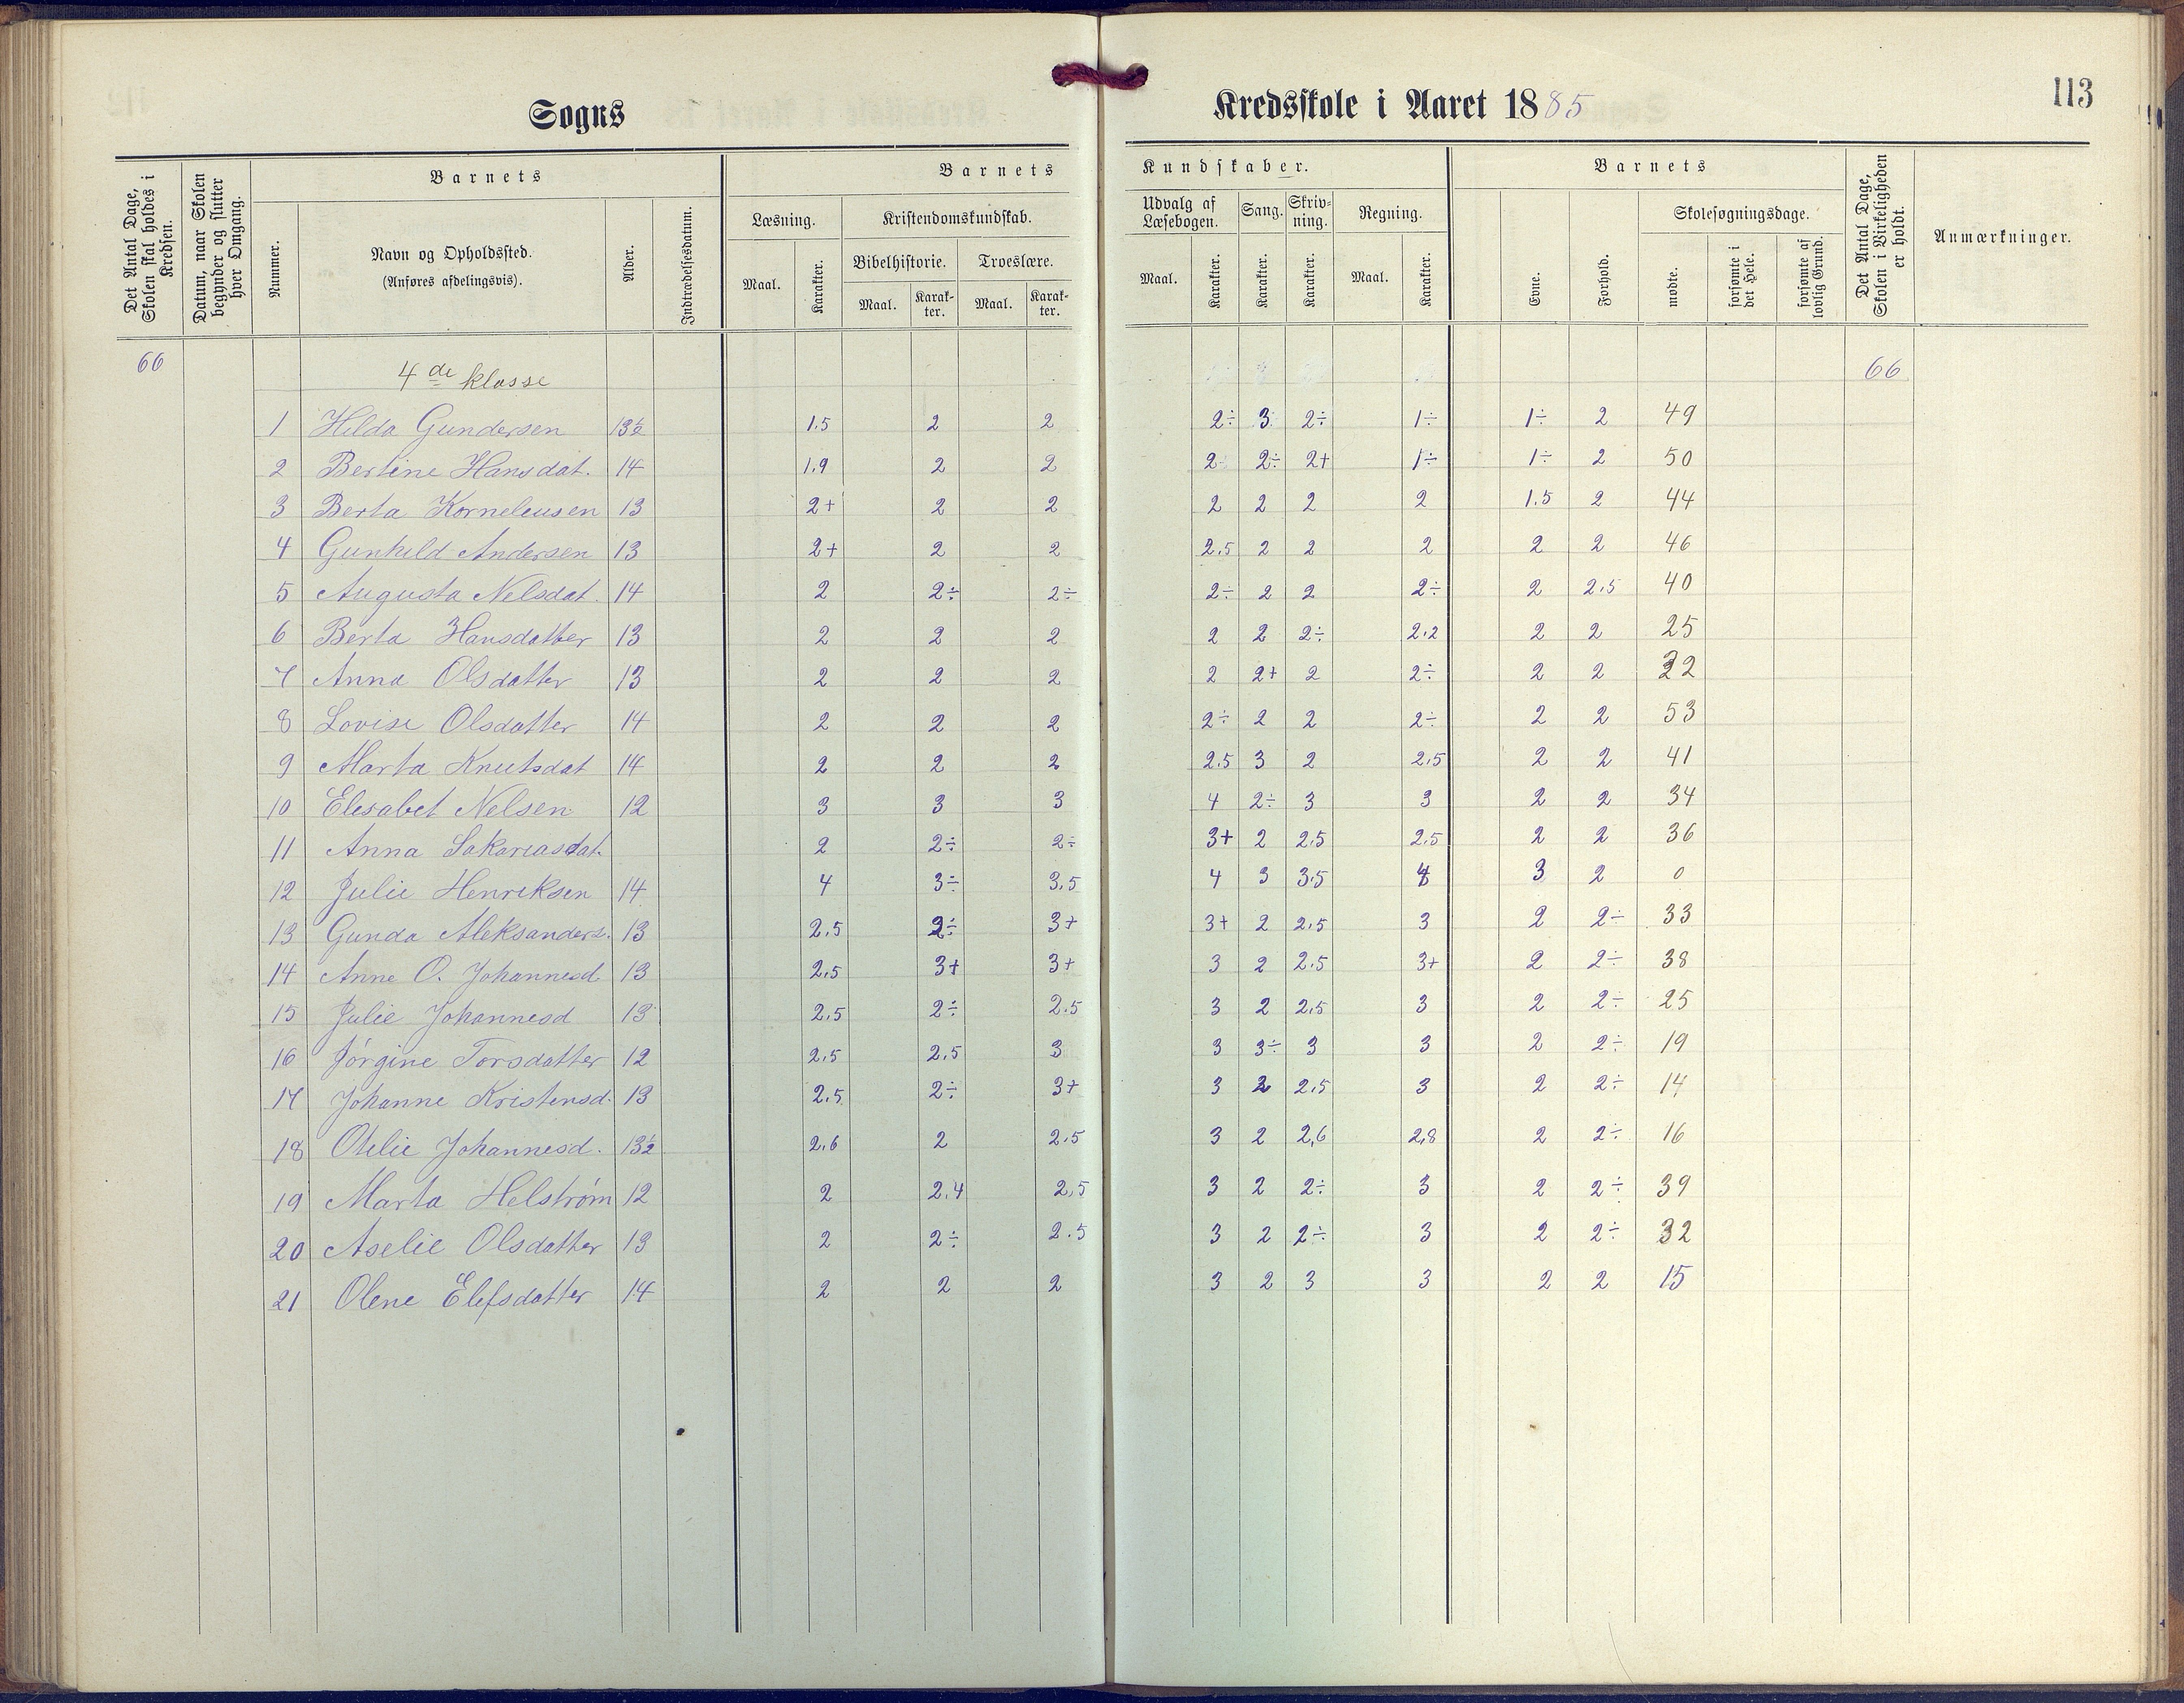 Sogns
Kredsskole i Aaret 1885
113
Det Antal Dage, Skolen skal holdes i Kredsen.
Datum, naar Skolen begynder og slutter hver Omgang.
Barnets
Nummer.
Navn og Opholdssted.
(Anføres afdelingsvis).
Alder.
Indtrædelsesdatum.
Barnets
Kundskaber.
Læsning.
Maal.
Karakter.
Kristendomskundskab.
Bibelhistorie.
Maal.
Karak-
ter.
Troeslære.
Maal.
Karak-
ter.
Udvalg af
Læsebogen.
Maal.
Karakter.
Sang.
Karakter.
Skriv-
ning.
Karakter.
Regning.
Maal.
Karakter.
Barnets
Evne.
Forhold.
Skolesøgningsdage.
mødte.
forsømte i det Hele.
forsømte af lovlig Grund.
Det Antal Dage, Skolen i Virkeligheden er holdt.
Anmærkninger.
66 4de klasse 66
1 Hilda Gundersen 13½ 1.5 2 2 2÷ 3 2÷ 1÷ 1÷ 2 49
2 Bertine Hansdat. 14 1.9 2 2 2÷ 2÷ 2+ 1÷ 1÷ 2 50
3 Berta Korneleusen 13 2+ 2 2 2 2 2 2 1.5 2 44
4 Gunhild Andersen 13 2+ 2 2 2.5 2 2 2 2 2 46
5 Augusta Nelsdat. 14 2 2÷ 2÷ 2÷ 2 2 2÷ 2 2.5 40
6 Berta Hansdatter 13 2 2 2 2 2 2÷ 2.2 2 2 25
7 Anna Olsdatter 13 2 2 2 2 2+ 2 2÷ 2 2 32
8 Lovise Olsdatter 14 2 2 2 2÷ 2 2 2÷ 2 2 53
9 Marta Knutsdat 14 2 2 2 2.5 3 2 2.5 2 2 41
10 Elesabet Nelsen 12 3 3 3 4 2÷ 3 3 2 2 34
11 Anna Sakariasdat. 2 2÷ 2÷ 3+ 2 2.5 2.5 2 2 36
12 Julie Henriksen 14 4 3÷ 3.5 4 3 3.5 4 3 2 0
13 Gunda Aleksanders. 13 2.5 2÷ 3+ 3+ 2 2.5 3 2 2÷ 33
14 Anne O. Johannesd 13 2.5 3+ 3+ 3 2 2.5 3+ 2 2÷ 38
15 Julie Johannesd 13 2.5 2÷ 2.5 3 2 2.5 3 2 2÷ 25
16 Jørgine Torsdatter 12 2.5 2.5 3 3 3÷ 3 3 2 2÷ 19
17 Johanne Kristensd. 13 2.5 2÷ 3+ 3 2 2.5 3 2 2÷ 14
18 Otelie Johannesd. 13½ 2.6 2 2.5 3 2 2,6 2,8 2 2÷ 16
19 Marta Helstrøm 12 2 2.4 2,5 3 2 2÷ 3 2 2÷ 39
20 Aselie Olsdatter 13 2 2÷ 2.5 3 2 2÷ 3 2 2÷ 32
21 Olene Elefsdatter 14 2 2 2 3 2 3 3 2 2 15